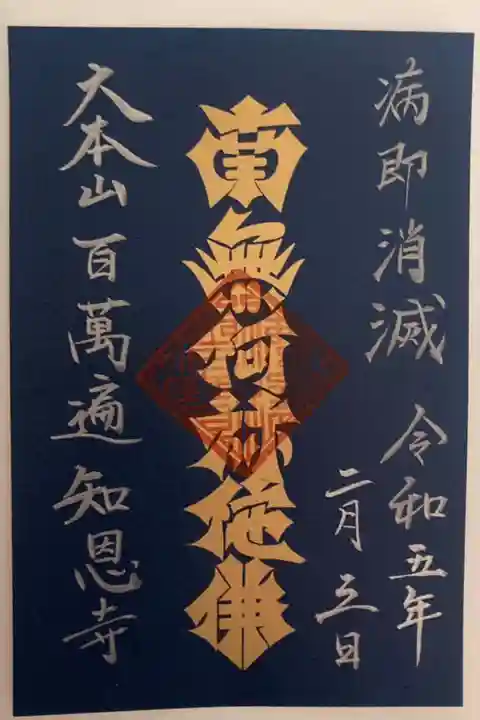 病即消滅 令和五年
二月立日
南無阿弥陀佛
大本山百萬遍知恩寺